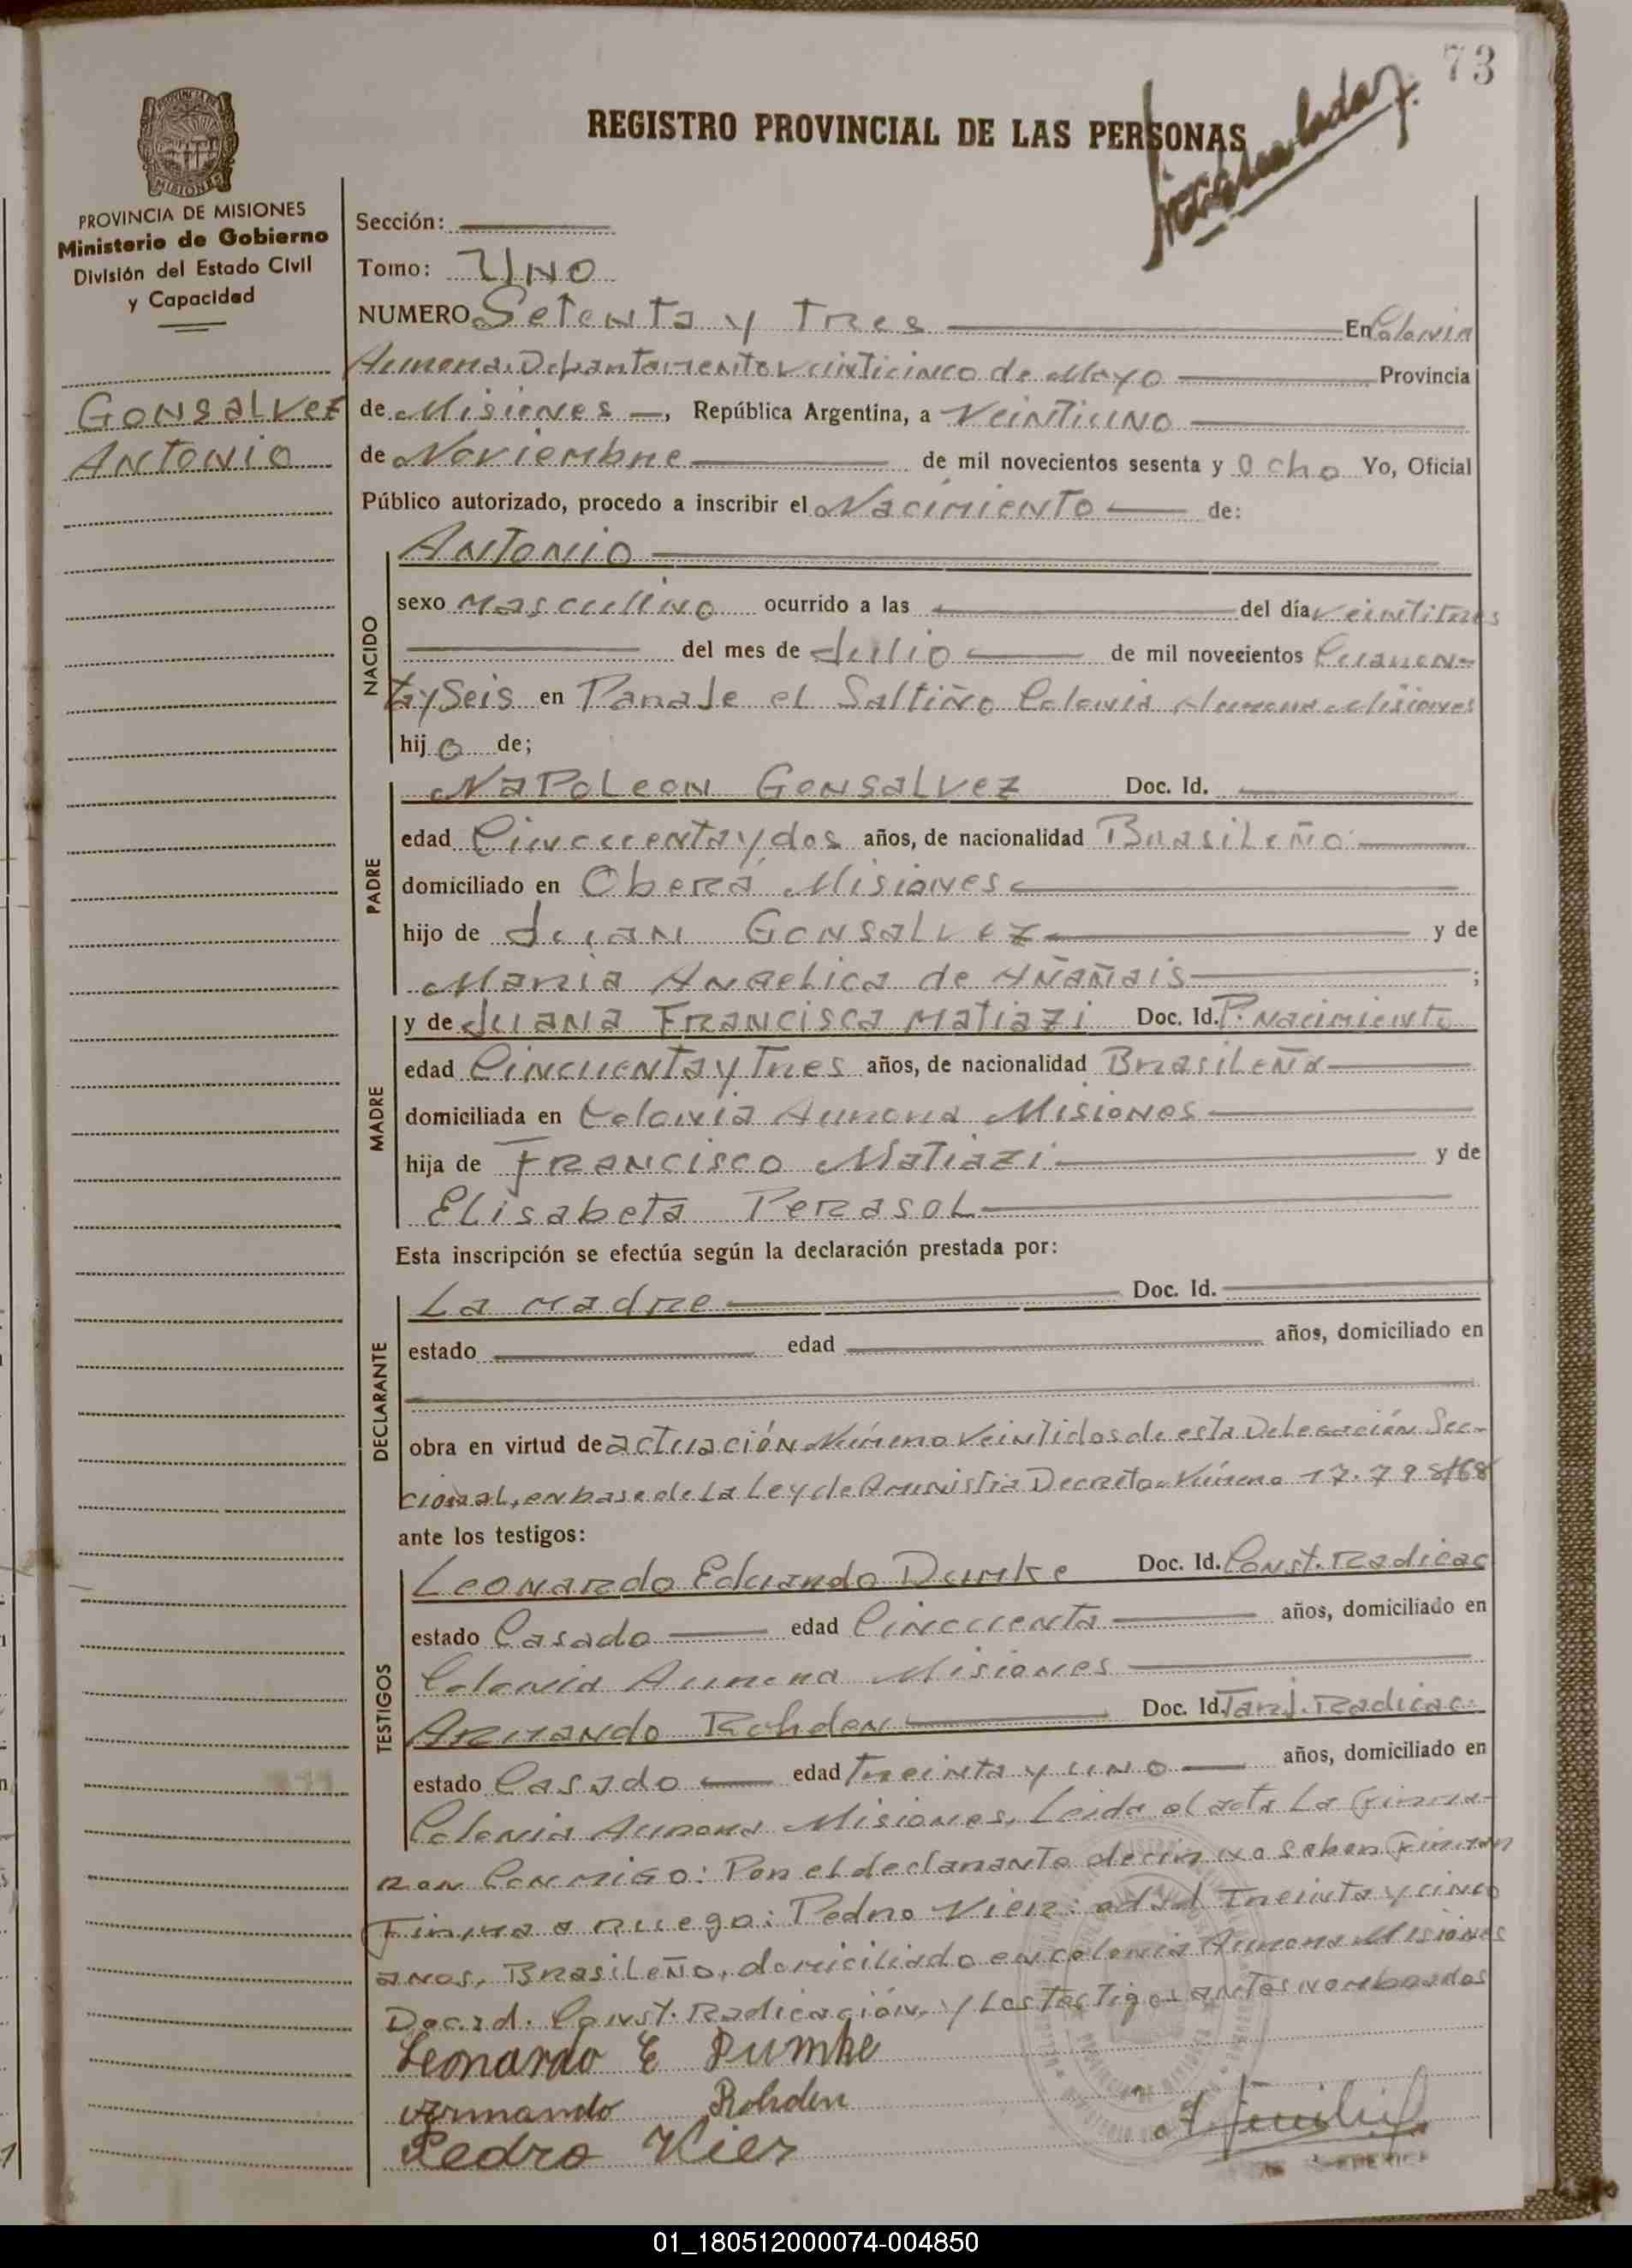 73
REGISTRO PROVINCIAL DE LAS PERSONAS
PROVINCIA DE MISIONES
Ministerio de Gobierno
División del Estado Civil
y Capacidad
Gonsalvez
Antonio
Sección:
Tomo: UNO
NUMERO Setenta y Tres En Colonia
Aurora. Departamento Veinticinco de Mayo Provincia
de Misiones, República Argentina, a Veintiuno
de Noviembre de mil novecientos sesenta y Ocho Yo, Oficial
Público autorizado, procedo a inscribir el Nacimiento de:
NACIDO
Antonio
sexo Masculino ocurrido a las del día veintitres
del mes de Julio de mil novecientos Cuaren-
ta y Seis en Paraje el Saltiño Colonia Aurora Misiones
hijo de;
PADRE
Napoleon Gonsalvez Doc. Id.
edad Cincuenta y dos años, de nacionalidad Brasileño
domiciliado en Oberá Misiones
hijo de Juan Gonsalvez y de
Maria Angelica de Añañais ;
MADRE
y de Juana Francisca Matiazi Doc. Id. P. Nacimiento
edad Cincuenta y Tres años, de nacionalidad Brasileña
domiciliada en Colonia Aurora Misiones
hija de Francisco Matiazi y de
Elisabeta Perasol
Esta inscripción se efectúa según la declaración prestada por:
DECLARANTE
La Madre Doc. Id.
estado edad años, domiciliado en
obra en virtud de actuación Número Veintidos de esta Delegación Sec-
cional, en base de La Ley de Amnistia Decreto Número 17.798/68
ante los testigos:
TESTIGOS
Leonardo Eduardo Dumke Doc. Id. Const. Radicac
estado Casado edad Cincuenta años, domiciliado en
Colonia Aurora Misiones
Armando Rohden Doc. Id. Tarj. Radicac.
estado Casado edad Treinta y uno años, domiciliado en
Colonia Aurora Misiones. Leida el acta La Firma-
ron Conmigo: Por el declarante decir no saber Firmar
Firma a ruego: Pedro Vier: edad Treinta y cinco
anos, Brasileño, domiciliado en colonia Aurora Misiones
Doc. id. Const. Radicación, y Los testigos antes nombrados
Leonardo E Dumke
Armando Rohden
Pedro Vier
01_180512000074-004850